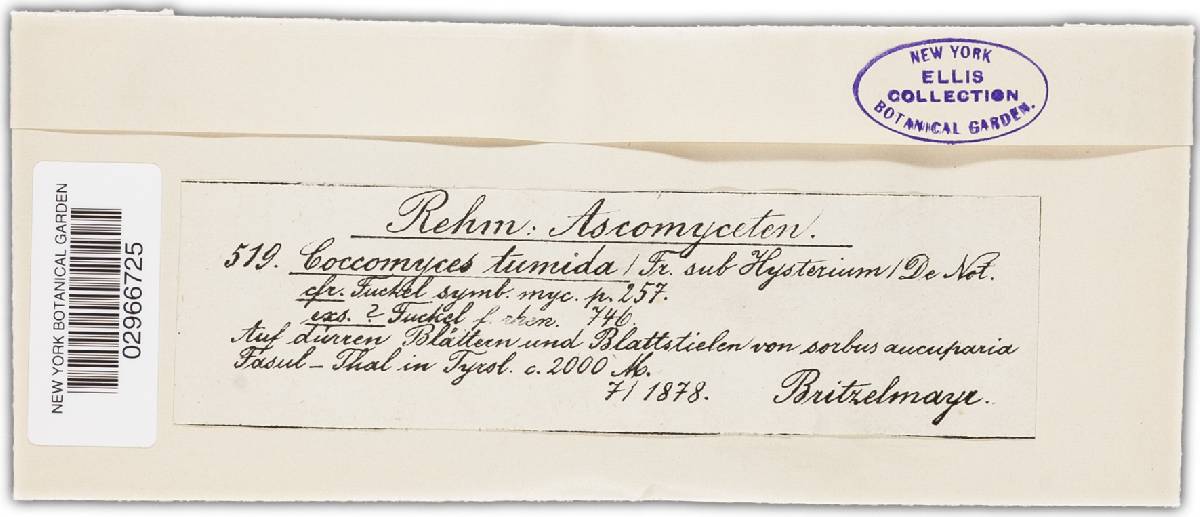 NEW YORK
ELLIS
COLLECTION
BOTANICAL GARDEN.
NEW YORK BOTANICAL GARDEN
02966725
Rehm: Ascomyceten.
519. Coccomyces tumida / Fr. sub Hysterium / De Not.
cfr. Fuckel symb. myc. p. 257.
exs. ? Fuckel f. rhen. 746.
Auf dürren Blättern und Blattstielen von sorbus aucuparia
Fasul - Thal in Tyrol. c. 2000 M.
7/ 1878. Britzelmayr.